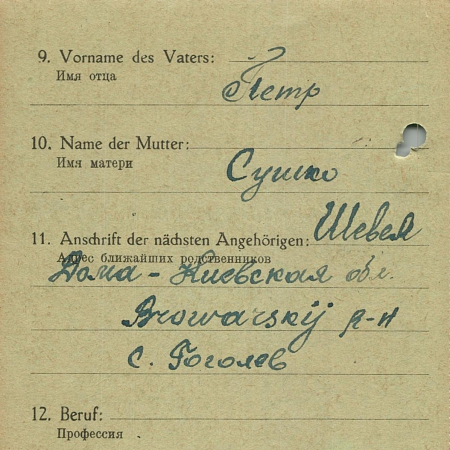 9. Vorname des Vaters:
Имя отца
Петр
10. Name der Mutter:
Имя матери
Сушко
11. Anschrift der nächsten Angehörigen: Шевел
Адрес ближайших родственников
Дома - Киевская обл.
Browarskij р-н
с. Гоголев
12. Beruf:
Профессия